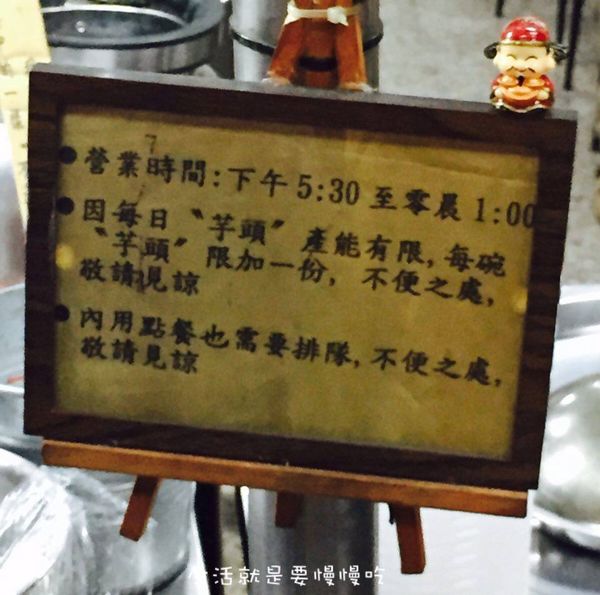 營業時間：下午 5:30 至零晨 1:00
因每日〝芋頭〞產能有限，每碗
〝芋頭〞限加一份，不便之處，
敬請見諒
內用點餐也需要排隊，不便之處，
敬請見諒
活就是要慢慢吃